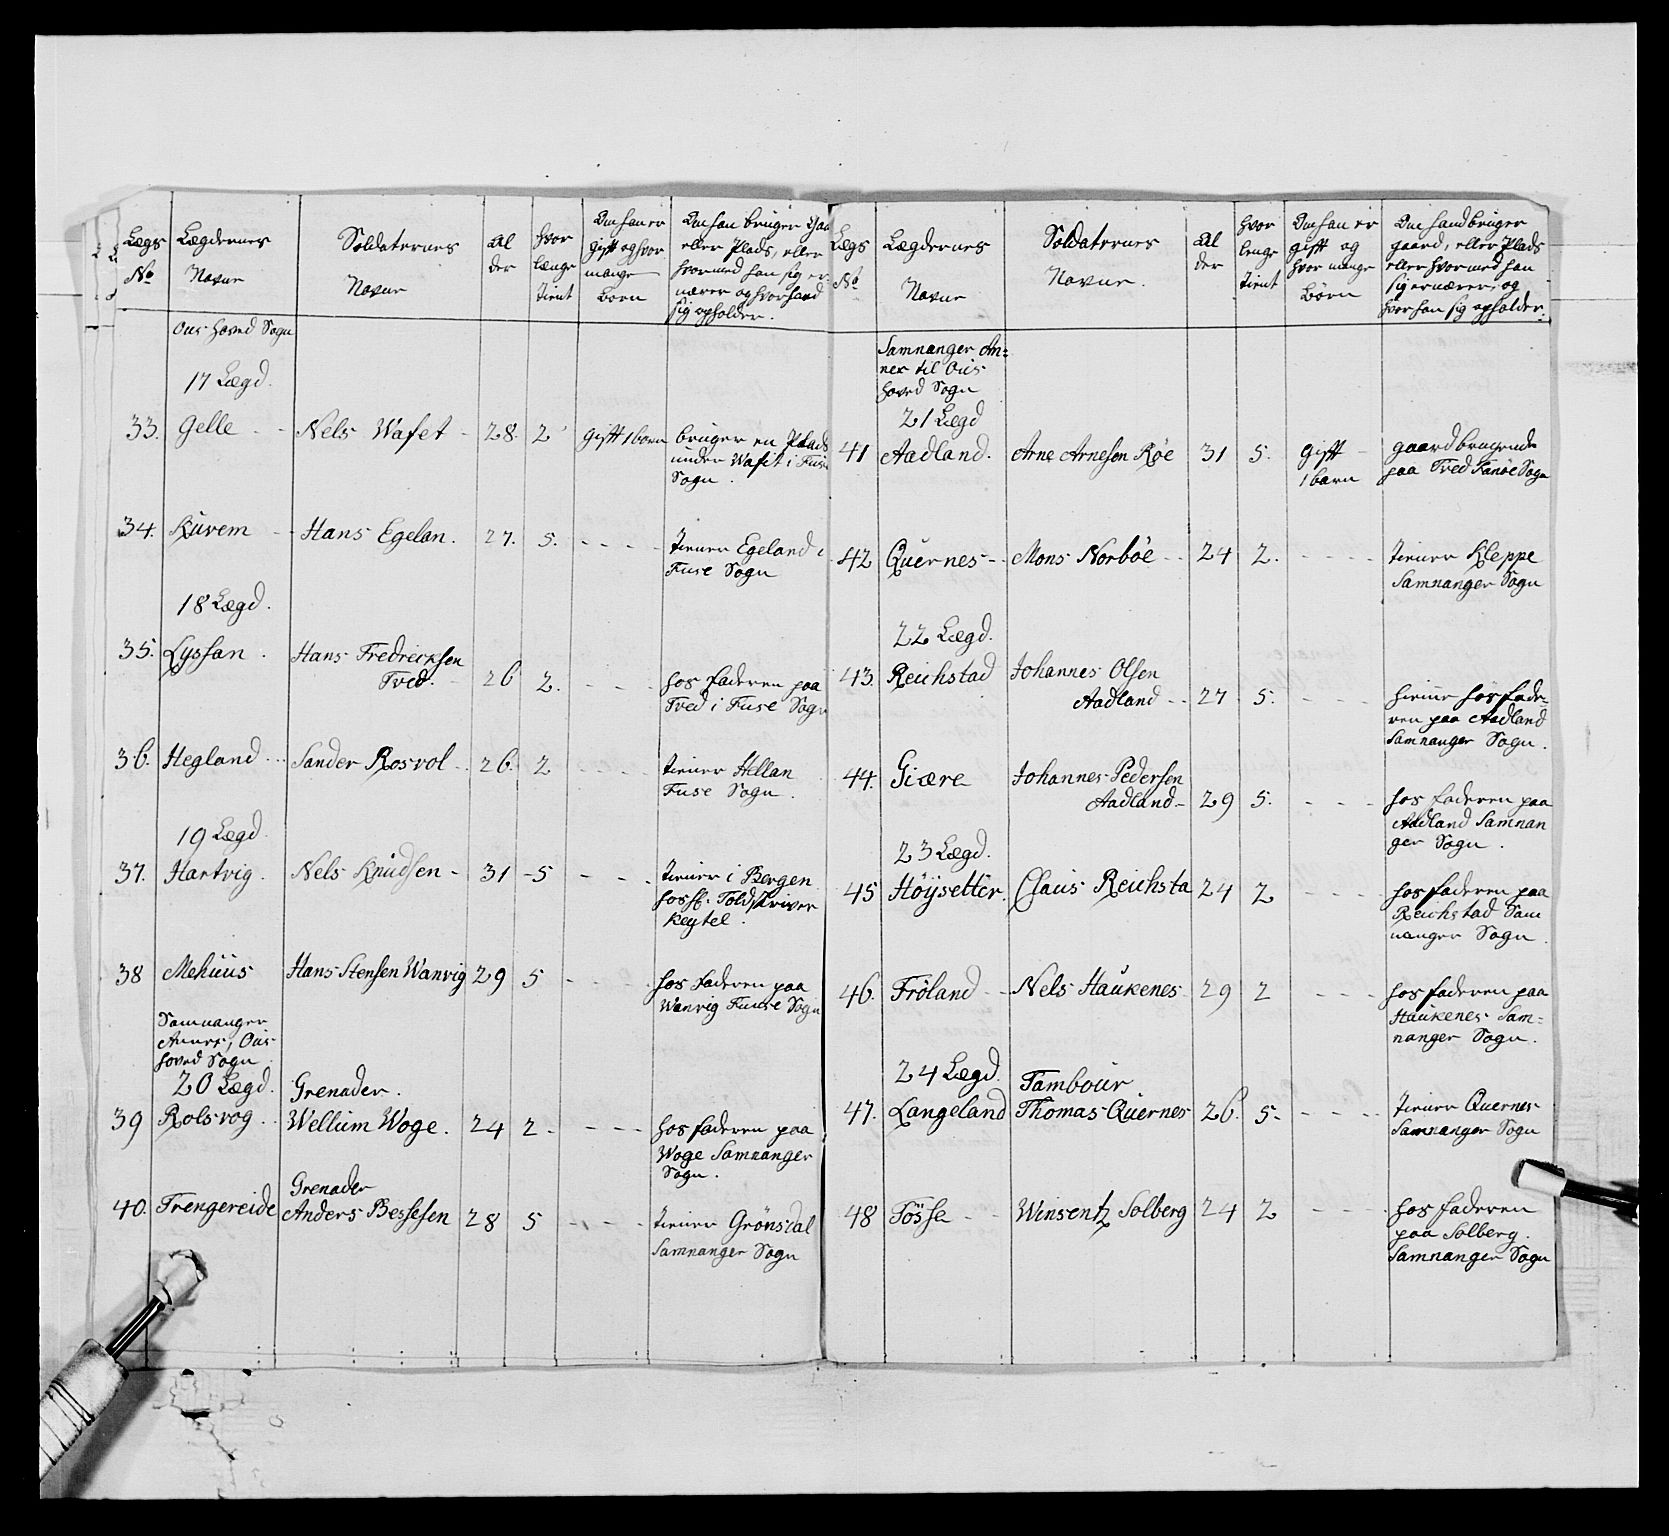 Lægs No
Lægdernes Navne
Soldaternes Navne
Al der
hvor længe tient
Om han er gift og hvor mange Børn
Om han bruger Gaa eller Plads, eller hvormed han sig er nærer og hvor hand sig opholder.
Ous hoved Sogn
17 Lægd.
33. Gelle - - Nels Wafet - 28. 2 gift 1 barn bruger en Plads
under Wafet i Fuse
Sogn.
34. Kuvem - - Hans Egelan. 27. 5. - - - - tiener Egeland i
Fuse Sogn
18 Lægd.
35. Lyssan . Hans Fredricksen
Tved. - 26 2. - - - hos faderen paa
Tved i Fuse Sogn
36. Hegland - - - Sander Rosvol - 26. 2 - - - - tiener
Fuse Sogn.
19 Lægd.
37. Hartvig. Nels Knudsen - 31 - 5 - - - tiener i Bergen
hos H. Told skriver
Keytel.
38 Mehuus Hans Stensen Wanvig 29 5 - - - - hos faderen paa
Wanvig Fuuse Sogn
Samnanger
Annex, Ous
hoved Sogn
20 Lægd. Grenader.
39 Rolsvog - - Wellum Woge. 24 2 - - - - hos faderen paa
Woge Samnanger
Sogn.
Grenader
40. Trengereide Anders Bessesen 28 5 - - - tiener Grønsdal
Samnanger Sogn
Lægs No
Lægdernes Navne
Soldaternes Navne.
Al der
hvor lenge tient
Om han er gift og hvor mange Børn
Om hand bruger gaard, eller Plads eller hvormed han sig ernærer, og hvor han sig opholder.
Samnanger An=
nex til Ous
hoved Sogn
21 Lægd
41 Aadland. Arne Arnesen Røe 31 5. gift - gaard brugende
1 barn paa Tved Fanøe Sogn
42 Quernes - - Mons Norbøe - - 24 2. - - - - tiener Kleppe
Samnanger Sogn
22 Lægd.
43. Reichstad Johannes Olsen
Aadland - - 27 5. - - - hos fade-
ren paa Aadland
Samnanger Sogn.
44. Giære Johannes Pedersen
Aadland - 29 5. - - - hos faderen paa
Aadland Samnan
ger Sogn.
23 Lægd.
45 Høysetter. Claus Reichsta 24 2 - - - hos faderen paa
Reichstad Sam
nanger Sogn.
46. Frøland - - Nels Haukenes 29 2 - - - hos faderen paa
Haukenes Sam=
nanger Sogn.
24 Lægd. Tambour
47. Langeland Thomas Quernes 26. 5. - - - - tiener Quernes
Samnanger Sogn
48 Tøsse - - Winsentz Solberg 24 2 - - - hos faderen
paa Solberg.
Samnanger Sogn